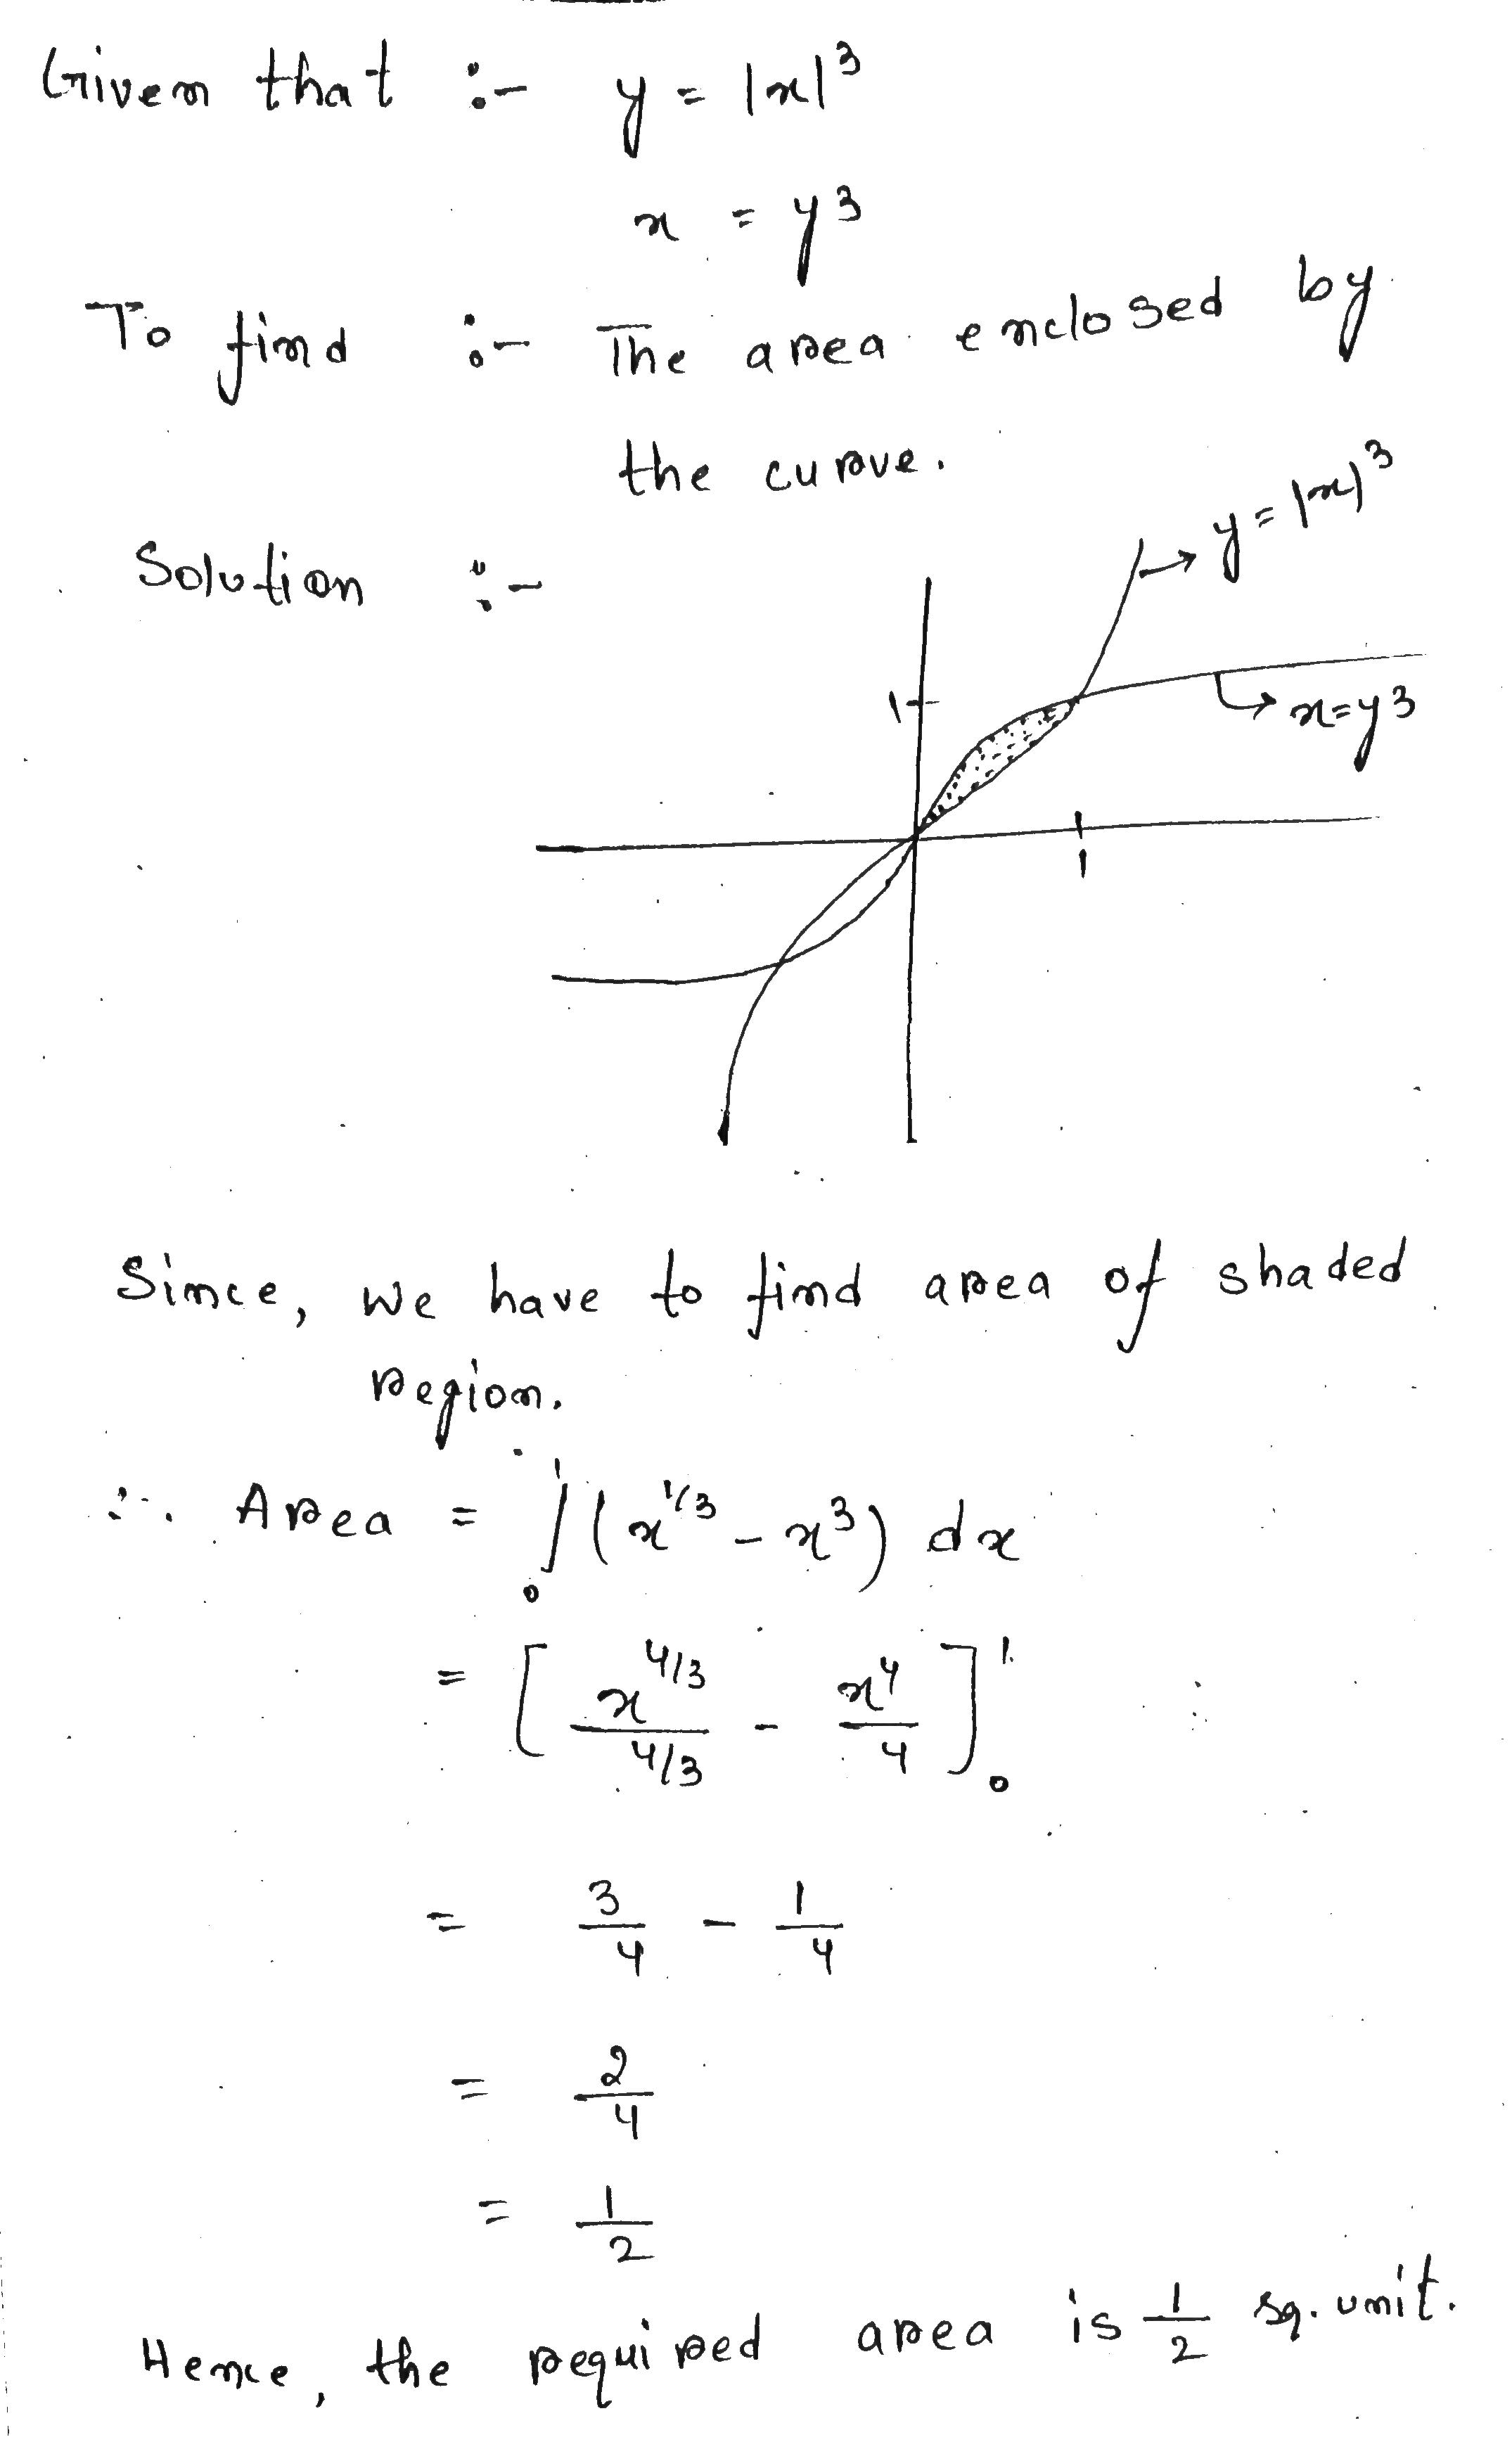 Given that :- y = |x|³
x = y³
To find :- The area enclosed by
the curve.
Solution :-
y = |x|³
1
x = y³
1
Since, we have to find area of shaded
region.
∴ Area = ∫₀¹ (x^{1/3} - x³) dx
= [ x^{4/3} / 4/3 - x⁴/4 ]₀¹
= 3/4 - 1/4
= 2/4
= 1/2
Hence, the required area is 1/2 sq. unit.